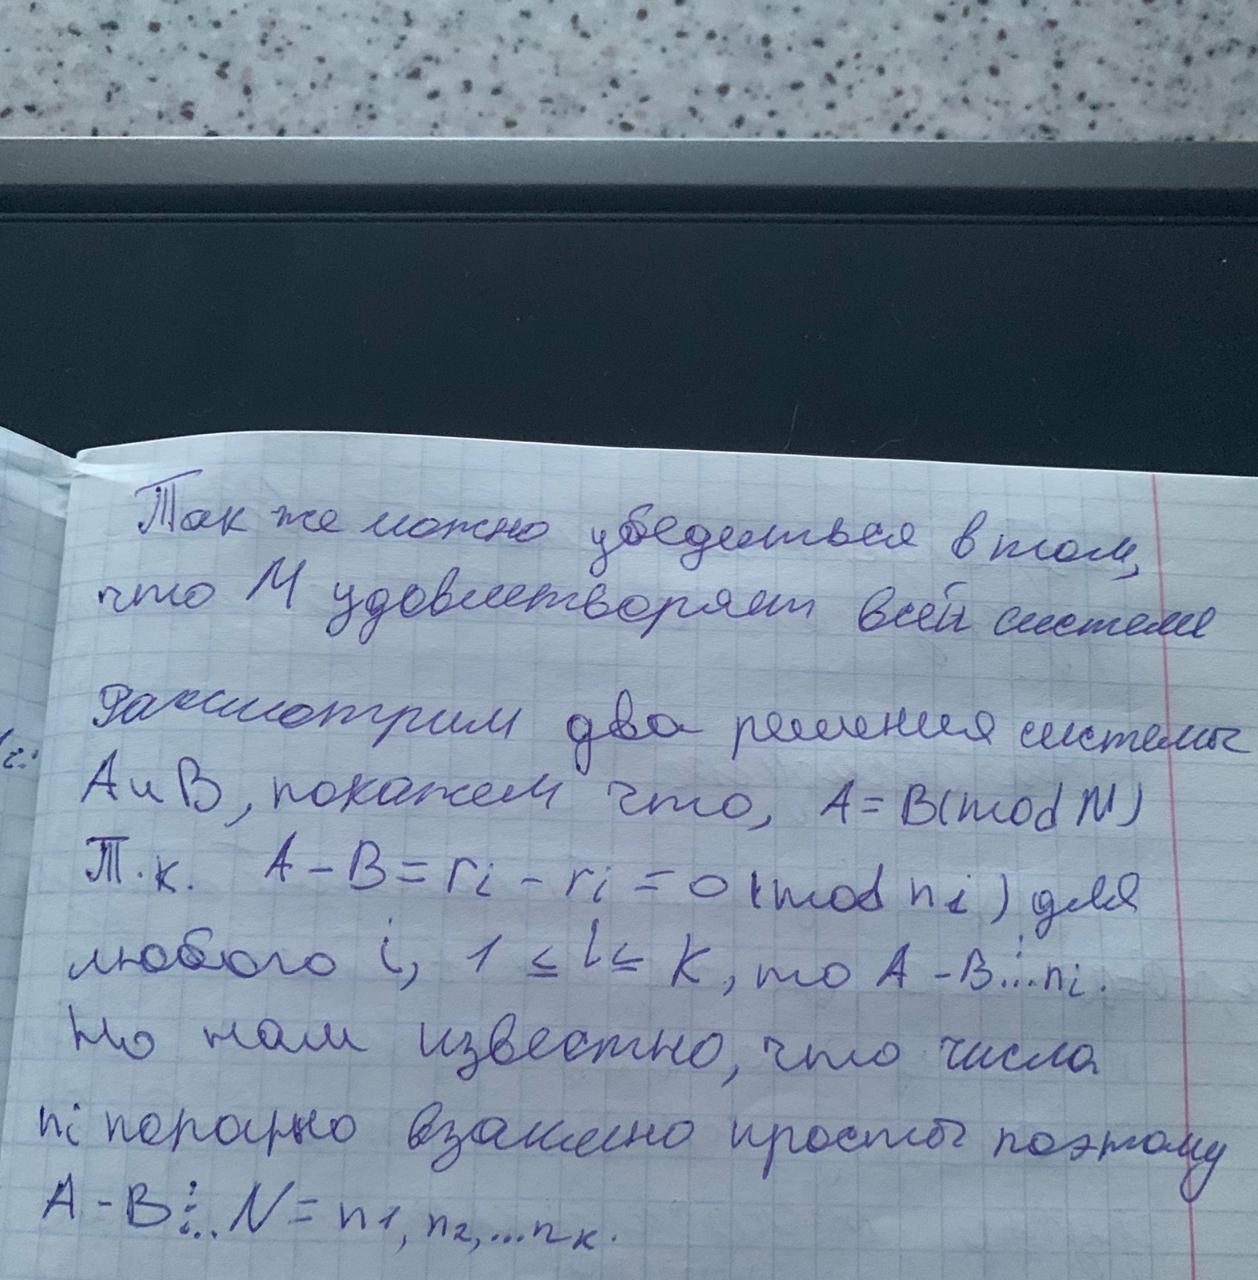 Так же можно убедиться в том,
что М удовлетворяет всей системе
Рассмотрим два решения системы
А и В, покажем что, А = В(mod N)
Т.к. А - В = ri - ri = 0 (mod ni) для
любого i, 1 ≤ i ≤ K, то А - В ⋮ ni.
Но нам известно, что числа
ni попарно взаимно просты поэтому
А - В ⋮ N = n1, n2, ... nк.